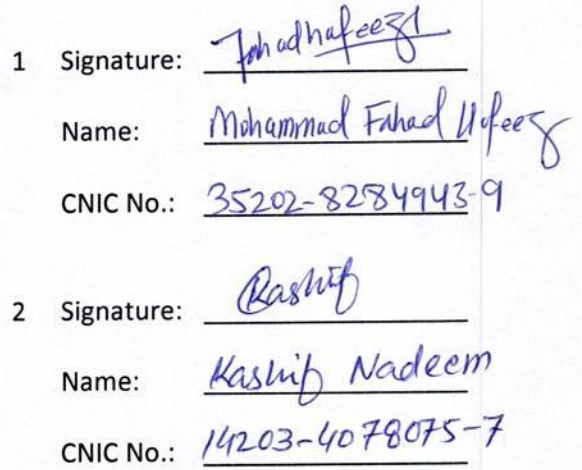 1 Signature: Fahadhafeez
Name: Mohammad Fahad Hafeez
CNIC No.: 35202-8284943-9
2 Signature: Kashif
Name: Kashif Nadeem
CNIC No.: 14203-4078075-7